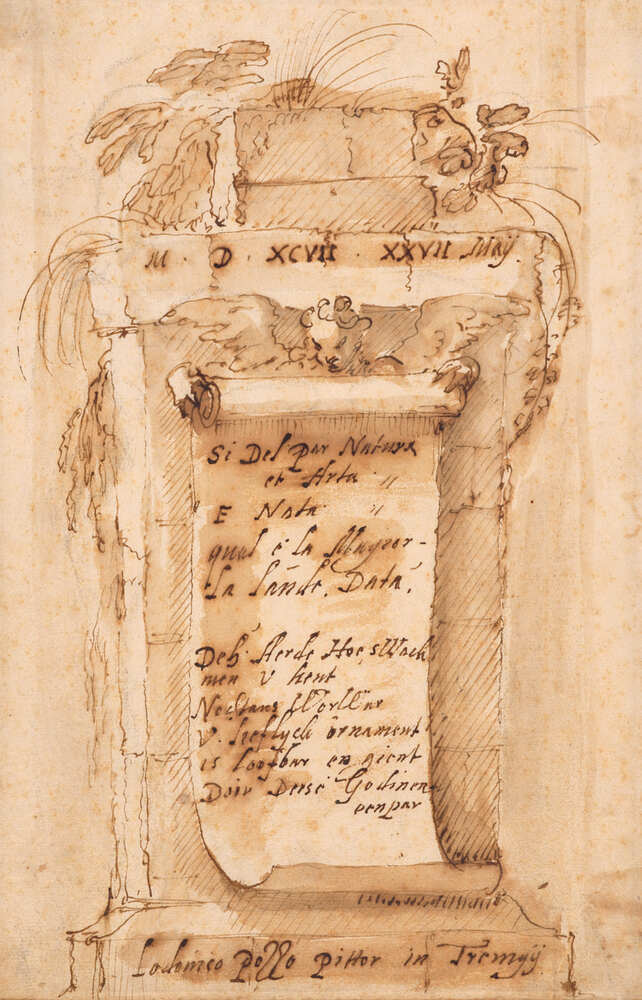 M · D · XCVII · XXVII Maij
Si Del par Natura
et Arta "
E Nata "
qual é la Magior-
la laude, Data,
Deh Aerde Hoe
men v kent
Nochtans
v. lieflyck ornament
is loofbar en gient
Doir Dese Godinen
eenpar
Lodovico Pozzo pittor in Tremgij